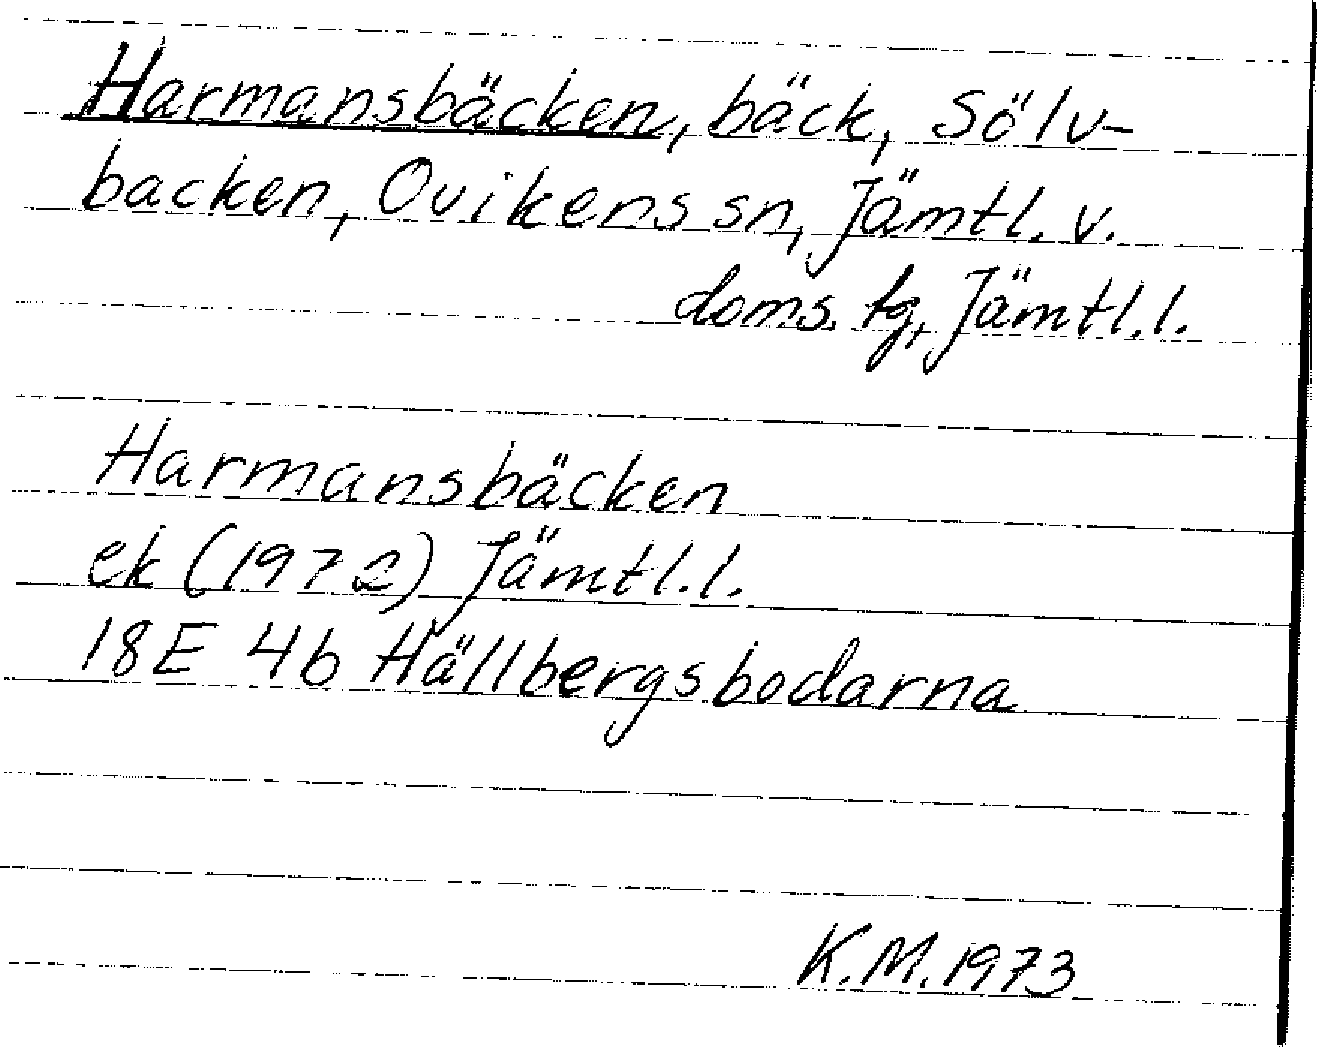 Harmansbäcken, bäck, Sölv-
backen, Ovikens sn, Jämtl. v.
doms. tg, Jämtl.l.
Harmansbäcken
ek (1972) Jämtl.l.
18E 4b Hällbergsbodarna
K.M. 1973